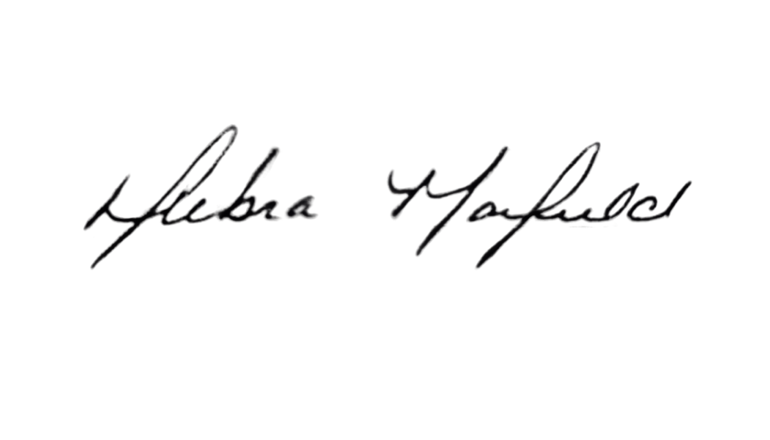 Debra Mayfield